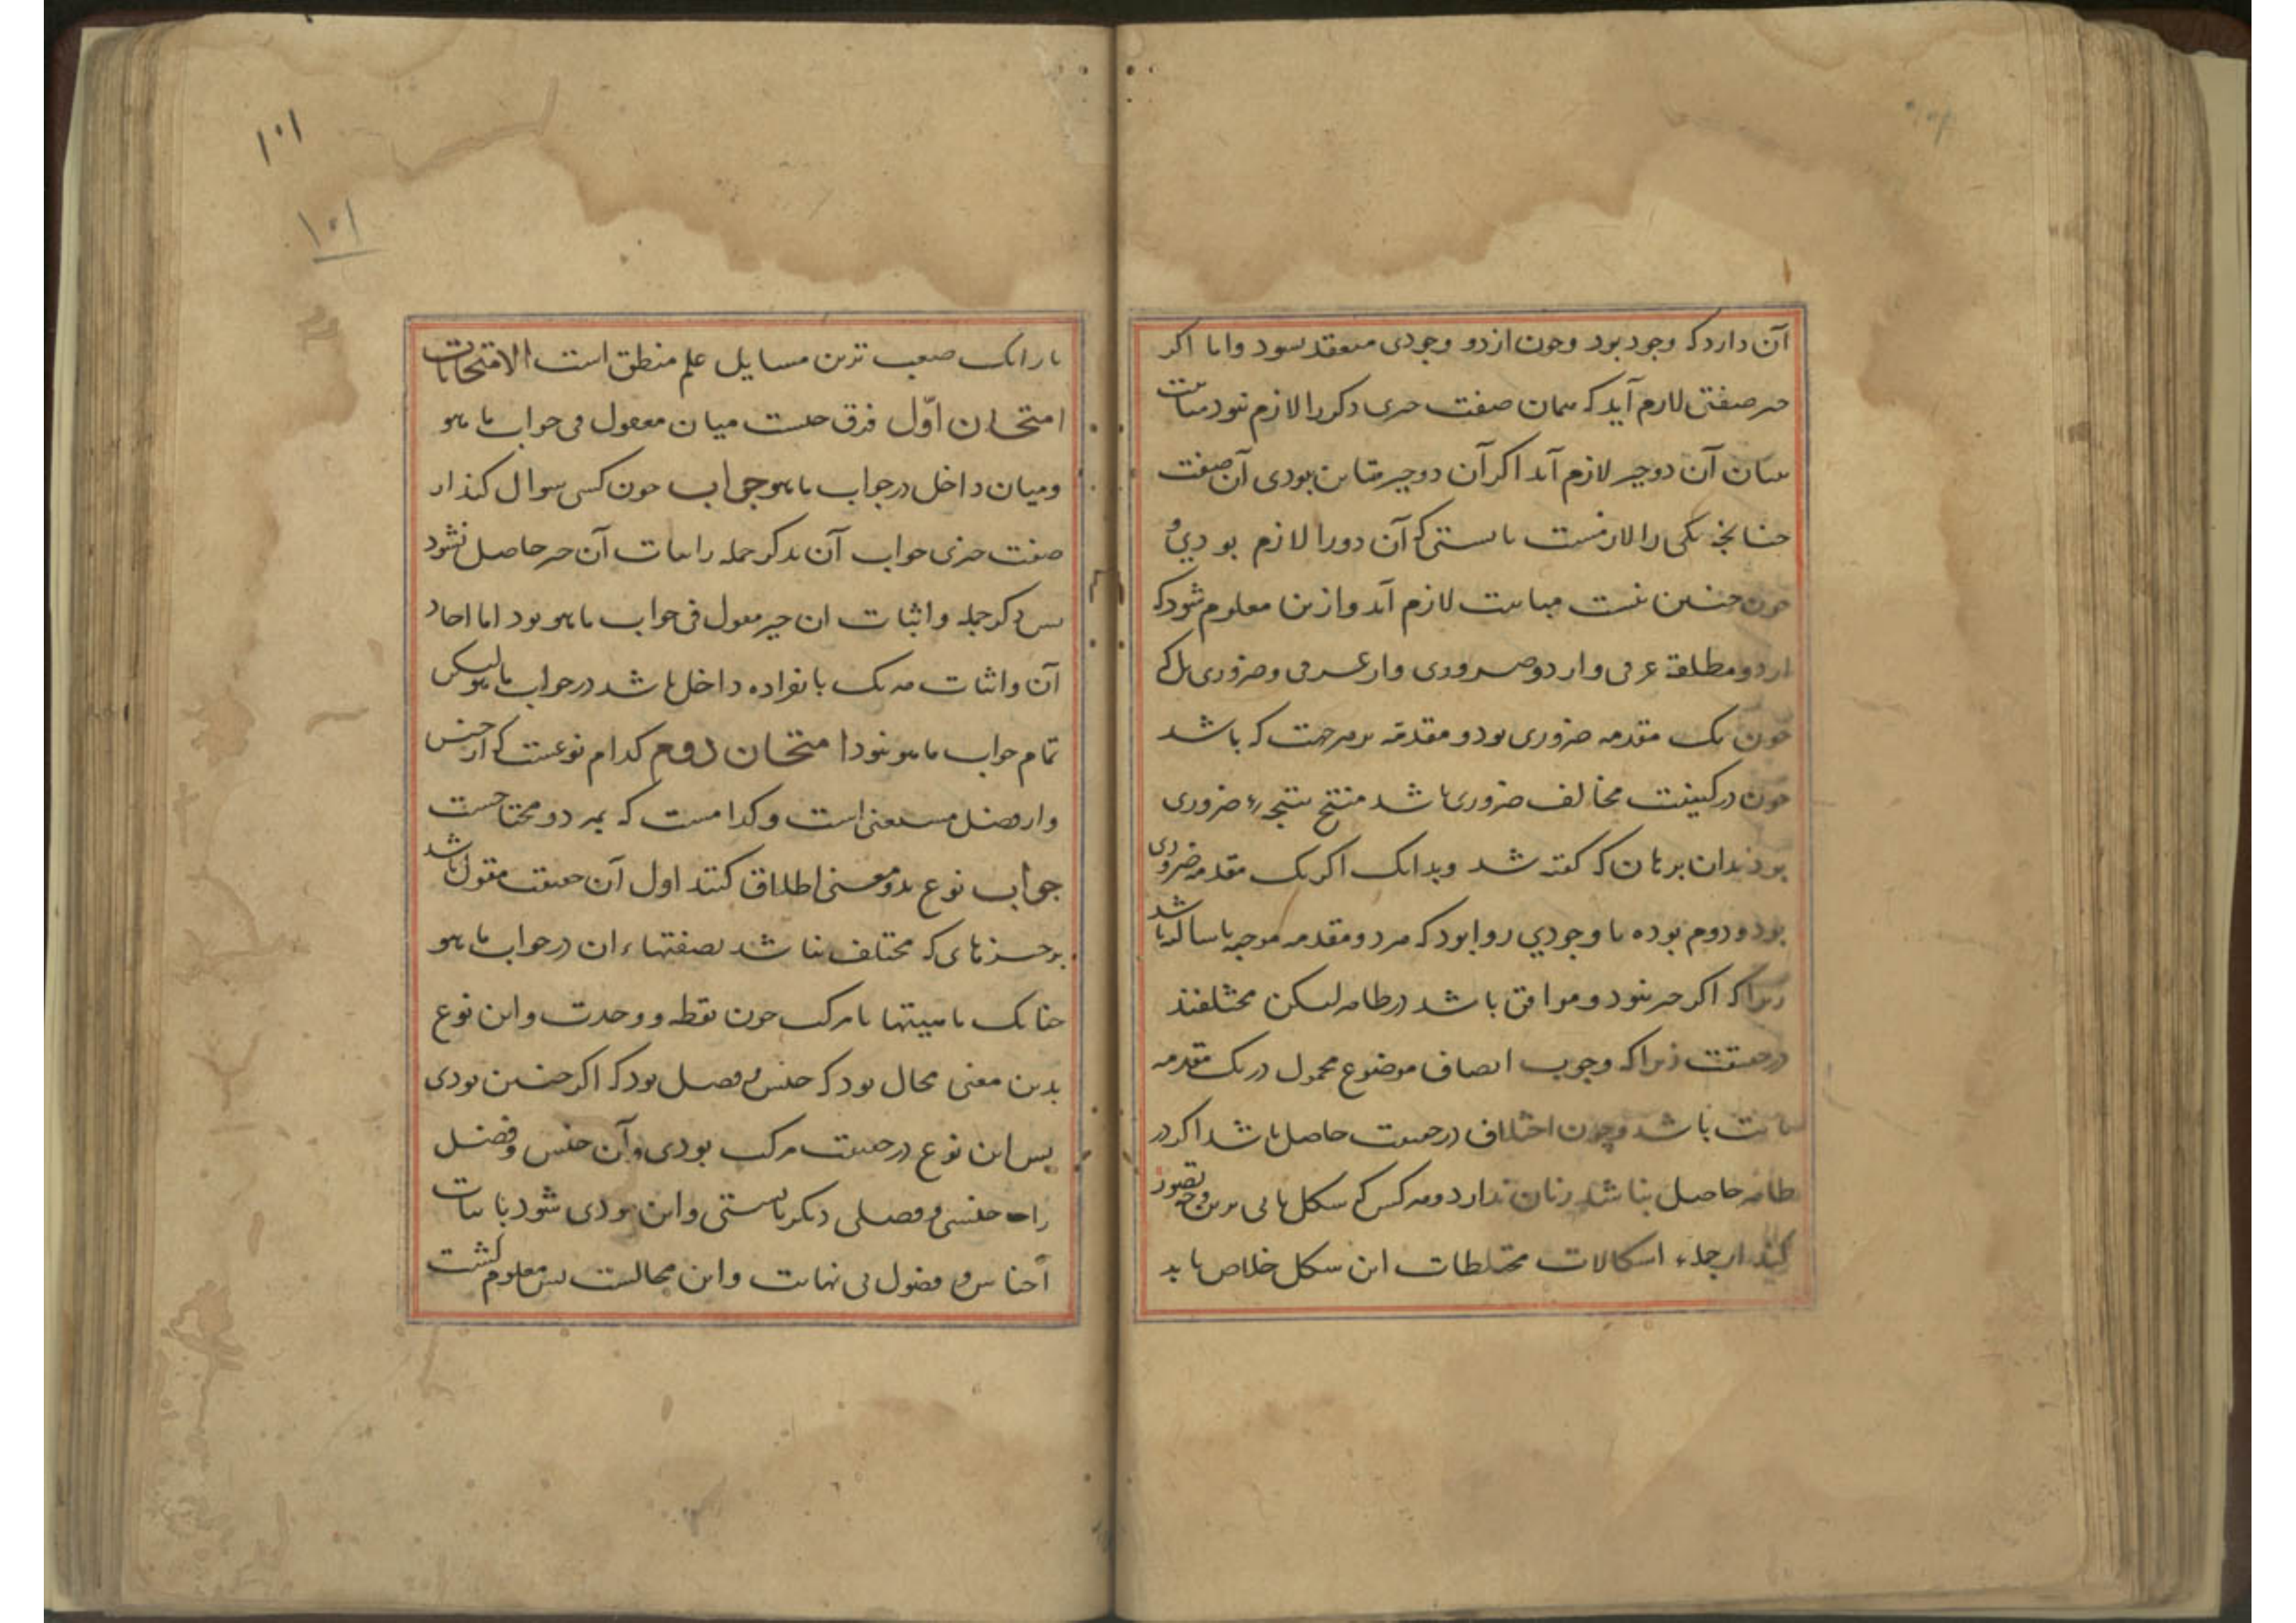 آن دارد که وجود بود و چون از دو وجودی منعقد شود و اما اکر
هر صفتی لازم آید که همان صفت چیزی دکر را لازم نبود مباینت
میان آن دو چیز لازم آید اکر آن دو چیز متباین بودی آن صفت
چنانچه یکی را لازمست بایستی که آن دو را لازم بودی و
چون چنین نیست مباینت لازم آید و ازین معلوم شود که
از دو مطلقهٔ عرفی و از دو ضروری و از عرفی و ضروری بل که
چون یک مقدمه ضروری بود و مقدمه بر هر جهت که باشد
چون در کیفیت مخالف ضروری باشد منتج نتیجهٔ ضروری
بود بدان برهان که کفته شد و بدانک اکر یک مقدمه ضروری
بود و دوم بوده یا وجودی روا بود که هر دو مقدمه موجبه یا سالبه باشد
زیرا که اکر چه بنود و موافق باشد در ظاهر لیکن مختلفند
در حقیقت زیرا که وجوب اتصاف موضوع محمول در یک مقدمه
باشد و چون اختلاف در حقیقت حاصل باشد اکر در
ظاهر حاصل نباشد زیان ندارد و هر کس که شکل ثانی برین وجه تصور
کند از جملهٔ اشکالات مختلطات این شکل خلاص یابد
۱۰۱
۱۰۱
یا زانک صعب ترین مسایل علم منطق است الامتحانات
امتحان اوّل فرق چیست میان مقول فی جواب ما هو
و میان داخل در جواب ما هو جواب چون کسی سوال کند از
صفت چیزی جواب آن بذکر جمله را اثبات آن چیز حاصل نشود
پس ذکر جمله و اثبات ان چیز مقول فی جواب ما هو بود اما احاد
آن و اثبات هر یک بانفراده داخل باشد در جواب ما هو لیکن
تمام جواب ما هو نبود امتحان دوم کدام نوعست که از جنس
و از فصل مستغنی است و کدامست که بهر دو محتاجست
جواب نوع بدو معنی اطلاق کنند اول آن حقیقت مقول باشد
بر چیزهای که مختلف نباشد بصفتهاء ان در جواب ما هو
چنانک ماهیتها نامرکب چون نقطه و وحدت و این نوع
بدین معنی محال بود که جنس و فصل بود که اکر چنین بودی
پس این نوع در حقیقت مرکب بودی و آن جنس و فصل
را جنسی و فصلی دیکر بایستی و این مودی شود باثبات
اجناس و فصول بی نهایت و این محالست پس معلوم کشت